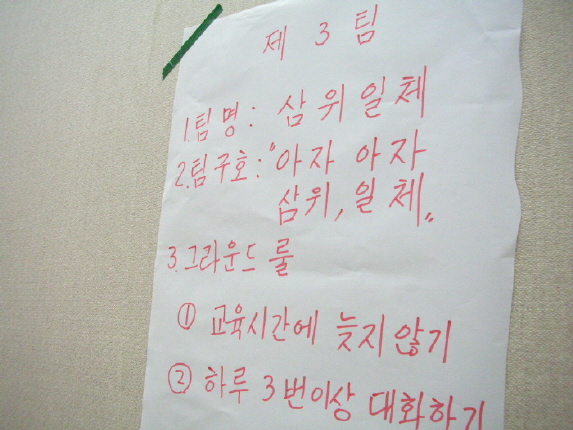 제 3 팀
1.팀명: 삼위일체
2.팀구호:"아자 아자
삼위, 일체"
3.그라운드 룰
① 교육시간에 늦지않기
② 하루 3번이상 대화하기